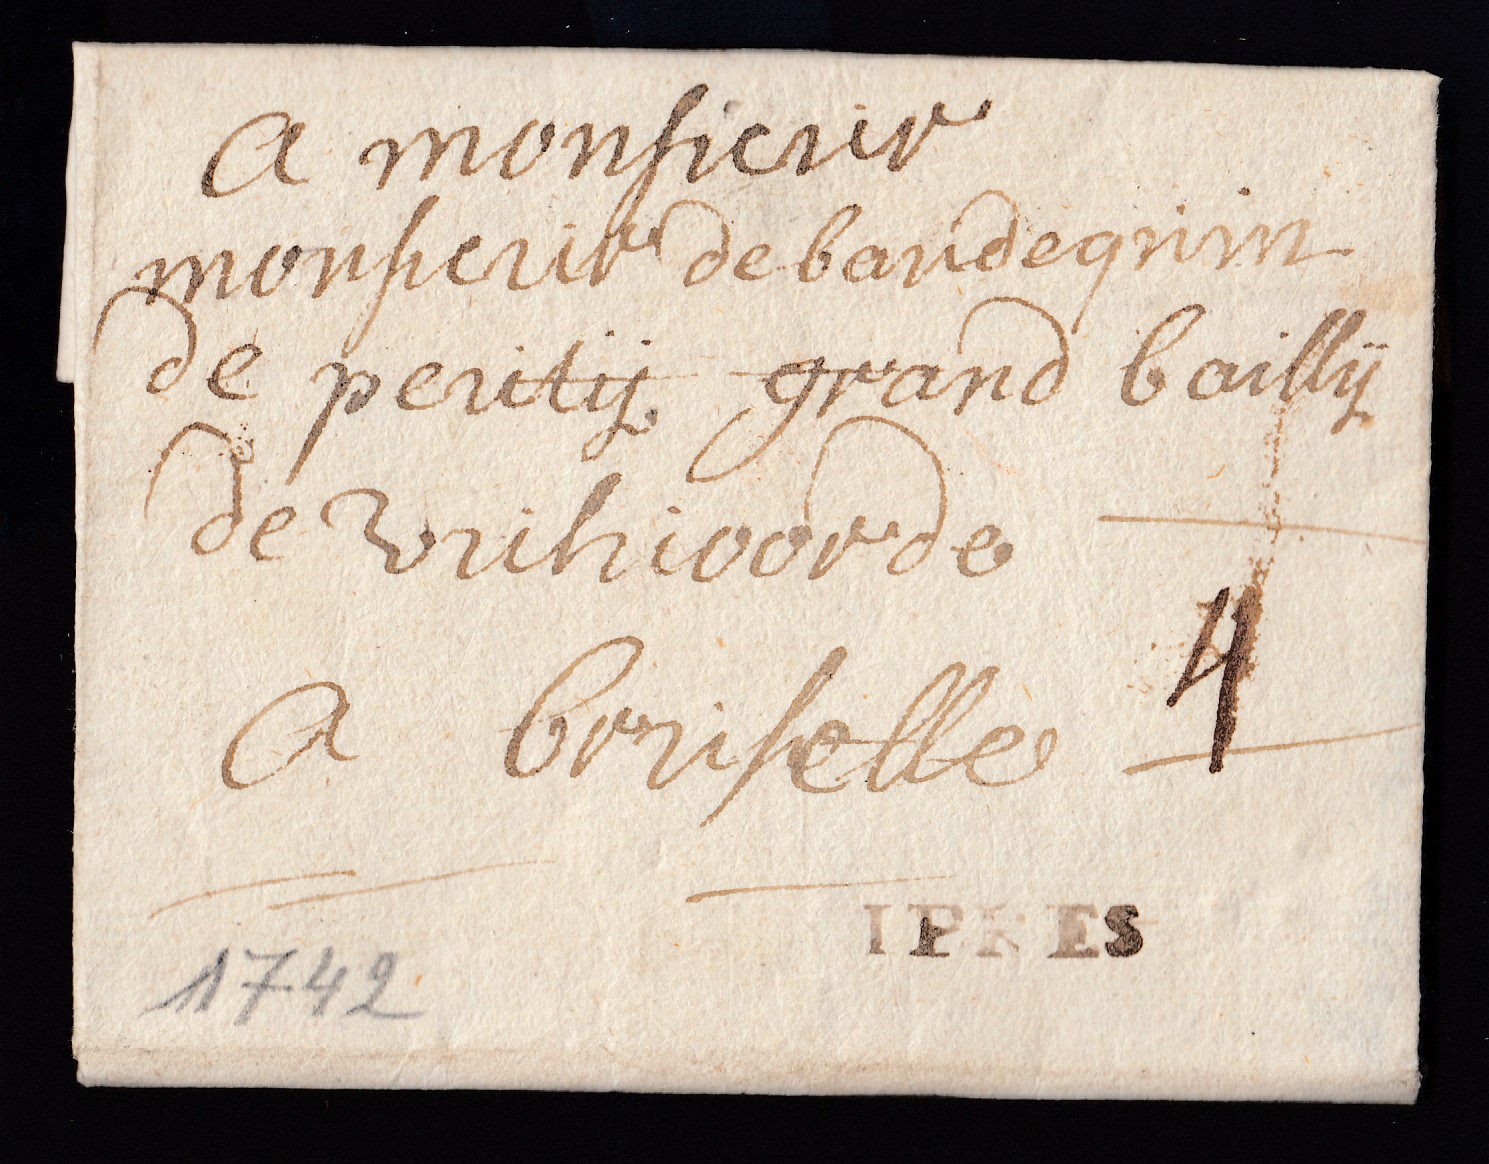 A monsieur
monsieur de baudequin
de peutij grand baillij
de vuilvoorde
4
A bruselle
IPRES
1742